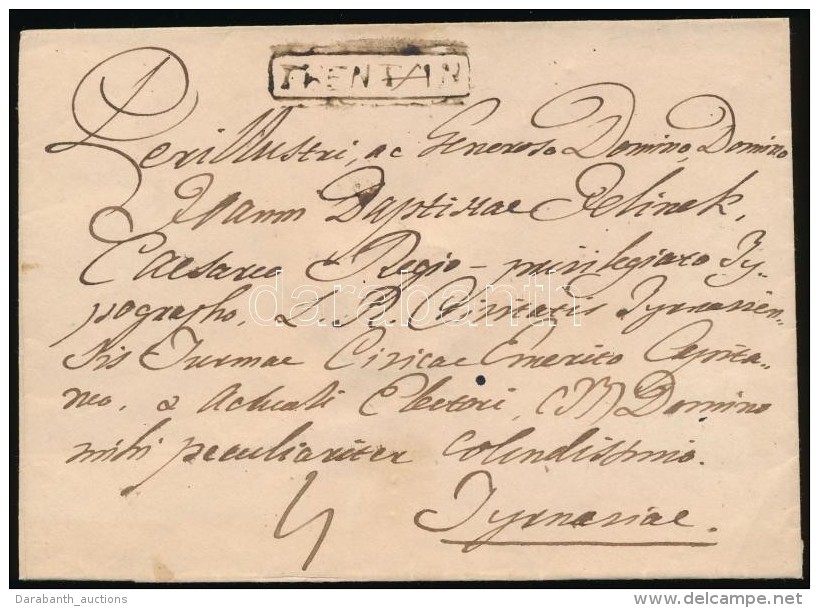 TRENTSIN
Perillustri, ac Generoso Domino, Domino
Joanni Baptistae Jelinek,
Caesareo & Regio-privilegiato Ty-
pographo, L. R. Civitatis Tyrnavien-
sis Turmae Civicae Emerito Capita-
neo, & Actuali Electori, (Tt) Domino
mihi peculiariter colendissimo.
4
Tyrnaviae.
darabanth
Darabanth_auctions
delcampe.net